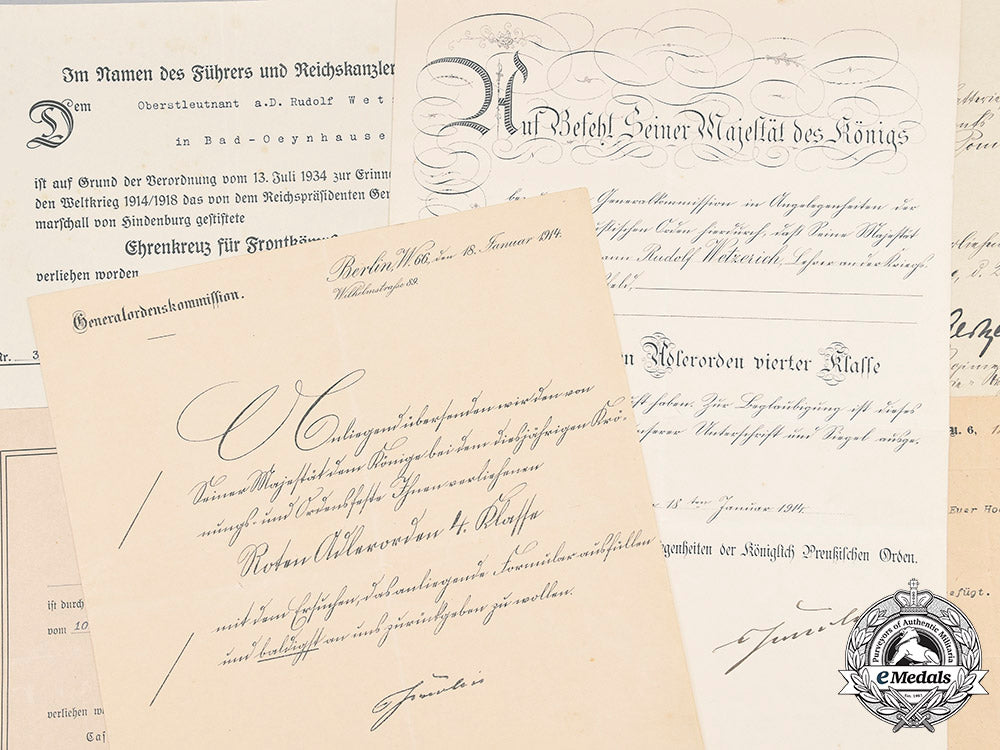 Im Namen des Führers und Reichskanzler
Dem Oberstleutnant a.D. Rudolf
in Bad-Oeynhause
ist auf Grund der Verordnung vom 13. Juli 1934 zur Erinne
den Weltkrieg 1914/1918 das von dem Reichspräsidenten Gen
marschall von Hindenburg gestiftete
Ehrenkreuz für Frontkämp
verliehen worden
Nr. 3
Auf Befehl Seiner Majestät des Königs
Generalkommission in Angelegenheiten der
ischen Orden hierdurch, daß Seine Majestät
ann Rudolf Wetzerich, Lehrer an der Kriegs-
feld,
n Adlerorden vierter Klasse
haben. Zur Beglaubigung ist dieses
unserer Unterschrift und Siegel ausge-
18ten Januar 1914.
egenheiten der Königlich Preußischen Orden.
Generalordenskommission.
Berlin W. 66, den 18. Januar 1914.
Wilhelmstraße 89.
Anliegend übersenden wir den von
Seiner Majestät dem Könige bei dem diesjährigen Krö-
nungs- und Ordensfeste Ihnen verliehenen
Roten Adlerorden 4. Klasse
mit dem Ersuchen, das anliegende Formular ausfüllen
und baldigst an uns zurückgeben zu wollen.
ist durch
vom 10
verliehen w
Cas
Euer Ho
efügt.
Purveyors of Authentic Militaria
eMedals